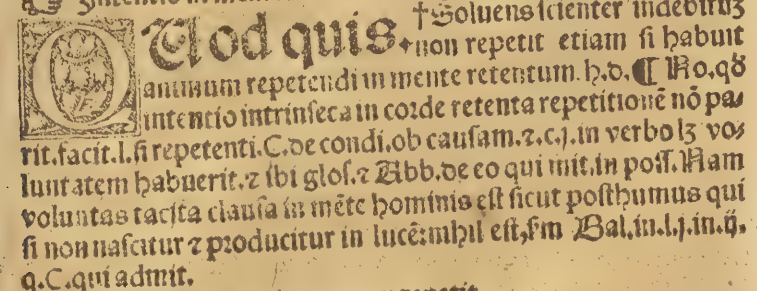 Intentio in men
†Soluens scienter indebituʒ
QUod quis.non repetit etiam si habuit
animum repetendi in mente retentum.h.d.¶ No.qð
intentio intrinseca in corde retenta repetitionē nō pa⸗
rit.facit.l.si repetenti.C.de condi.ob causam.⁊.c.j.in verbo lʒ vo⸗
luntatem habuerit.⁊ ibi glos.⁊ Abb.de eo qui mit.in poss.Nam
voluntas tacita clausa in mēte hominis est sicut posthumus qui
si non nascitur ⁊ producitur in lucē:nihil est,fm Bal.in.l.j.in.q̄.
q.C.qui admit.
repetit